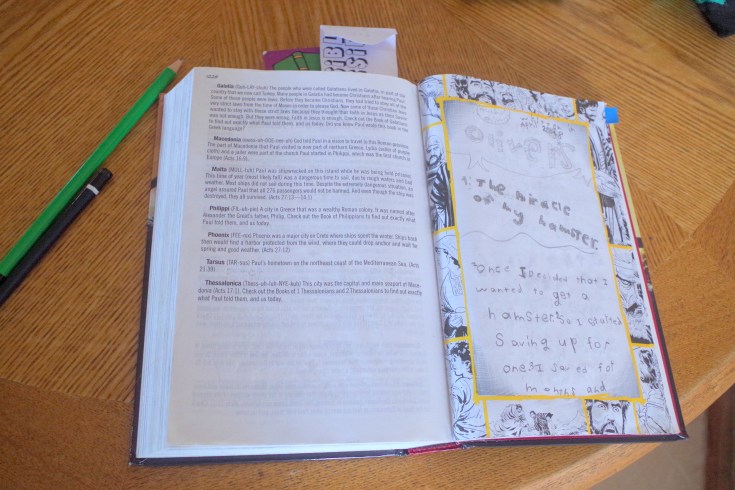 Galatia (Guh-LAY-shuh) The people who were called Galatians lived in Galatia, in part of the
country that we now call Turkey. Many people in Galatia had become Christians after hearing Paul.
Some of those people were Jews. Before they become Christians, they had tried to obey all of the
was not enough. But they were wrong; faith in Jesus is enough. Check out the Book of Galatians
to find out
Macedonia
The part of Macedonia that Paul visited is now part of northern Greece. Lydia (seller of purple
cloth) and a jailer were part of the church Paul started in Philippi, which was the first church in
Europe (Acts 16:9).
Malta (MUL-tuh) Paul was shipwrecked on this island while he was being
This time of year (most likely fall) was a dangerous time to sail, due to rough waters and bad
weather. Most ships did not sail during this time. Despite the extremely dangerous situation, an
angel assured Paul that all 276 passengers would not be harmed. And even though the ship was
destroyed, they all survived. (Acts 27:13—28:1)
Philippi (FIL-uh-pie) A city in Greece that was a wealthy Roman colony. It was named after
Alexander the Great's father, Philip. Check out the Book of Philippians to find out exactly what
Paul told them, and us today.
Phoenix (FEE-nix) Phoenix was a major city on Crete where ships spent the winter. Ships
then would find a harbor protected from the wind, where they could drop anchor and wait for
spring and good weather. (Acts 27:12)
Tarsus (TAR-sus) Paul's hometown on the northeast coast of the Mediterranean Sea. (Acts
21:39)
Thessalonica (Thess-uh-luh-NYE-kuh) This city was the capital and main seaport of Mace-
donia (Acts 17:1). Check out the Books of 1 Thessalonians and 2 Thessalonians to find out exactly
what Paul told them, and us today.
Olivia's
The Miracle
of my hamster.
Once I Decided that I
wanted to get a
hamster so I started
Saving up for
one I saved for
months and